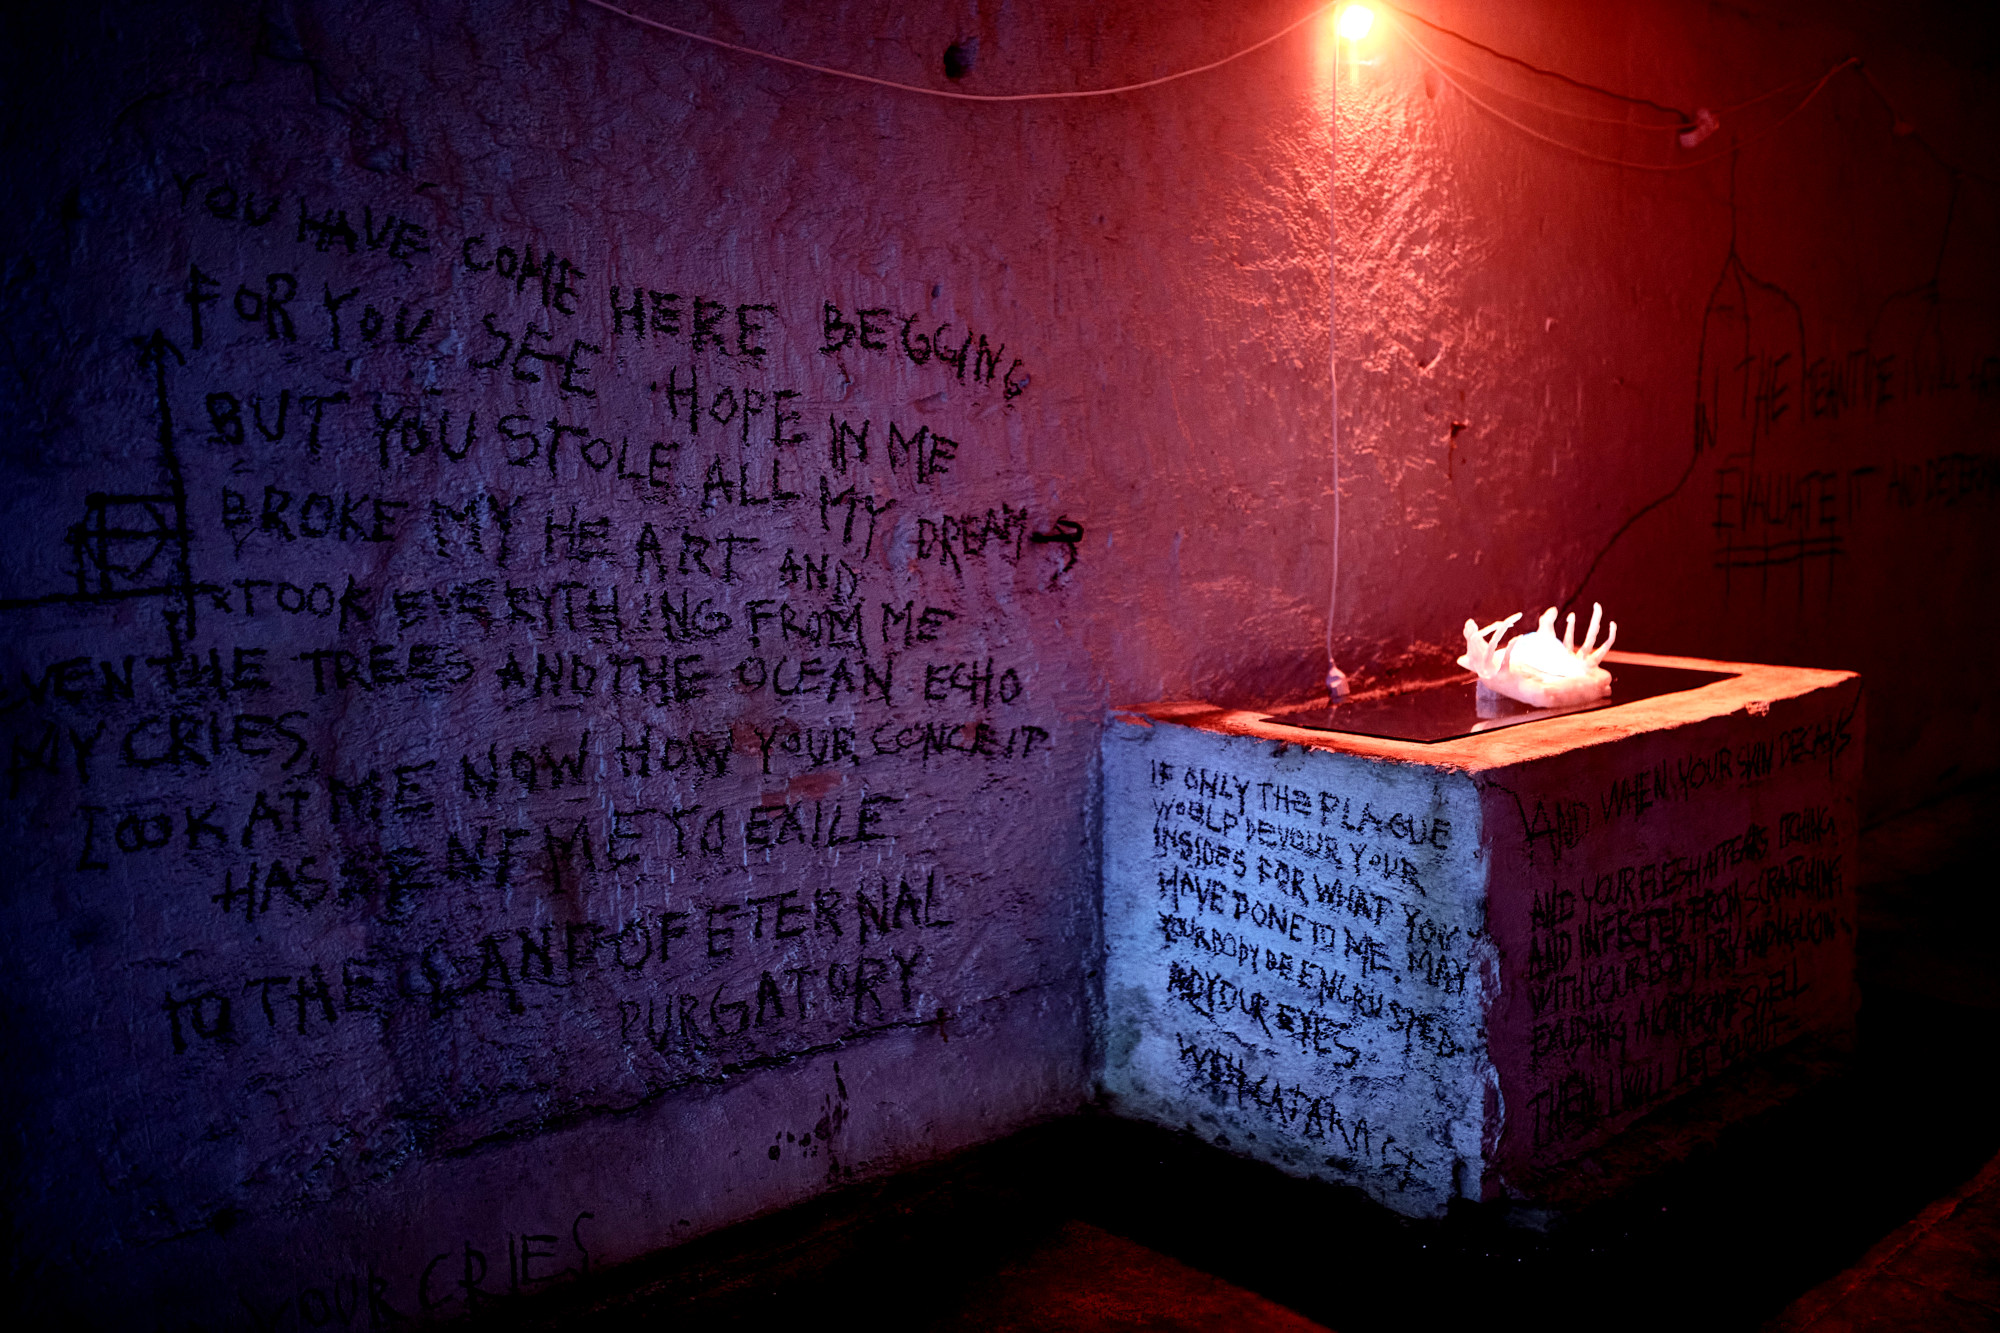 YOU HAVE COME HERE BEGGING
FOR YOU SEE HOPE IN ME
BUT YOU STOLE ALL MY DREAMS
BROKE MY HEART AND
TOOK EVERYTHING FROM ME
EVEN THE TREES AND THE OCEAN ECHO
MY CRIES,
LOOK AT ME NOW HOW YOUR CONCEIT
HAS SENT ME TO EXILE
TO THE LAND OF ETERNAL
PURGATORY
YOUR CRIES
IF ONLY THE PLAGUE
WOULD DEVOUR YOUR
INSIDES FOR WHAT YOU
HAVE DONE TO ME. MAY
YOUR BODY BE ENCRUSTED
AND YOUR EYES
WITH
AND WHEN YOUR SKIN DECAYS
AND YOUR FLESH APPEARS ITCHING
AND INFECTED FROM SCRATCHING
WITH YOUR BODY DRY AND
A SHELL
THEN I WILL LET YOU DIE
IN THE
EVALUATE IT AND